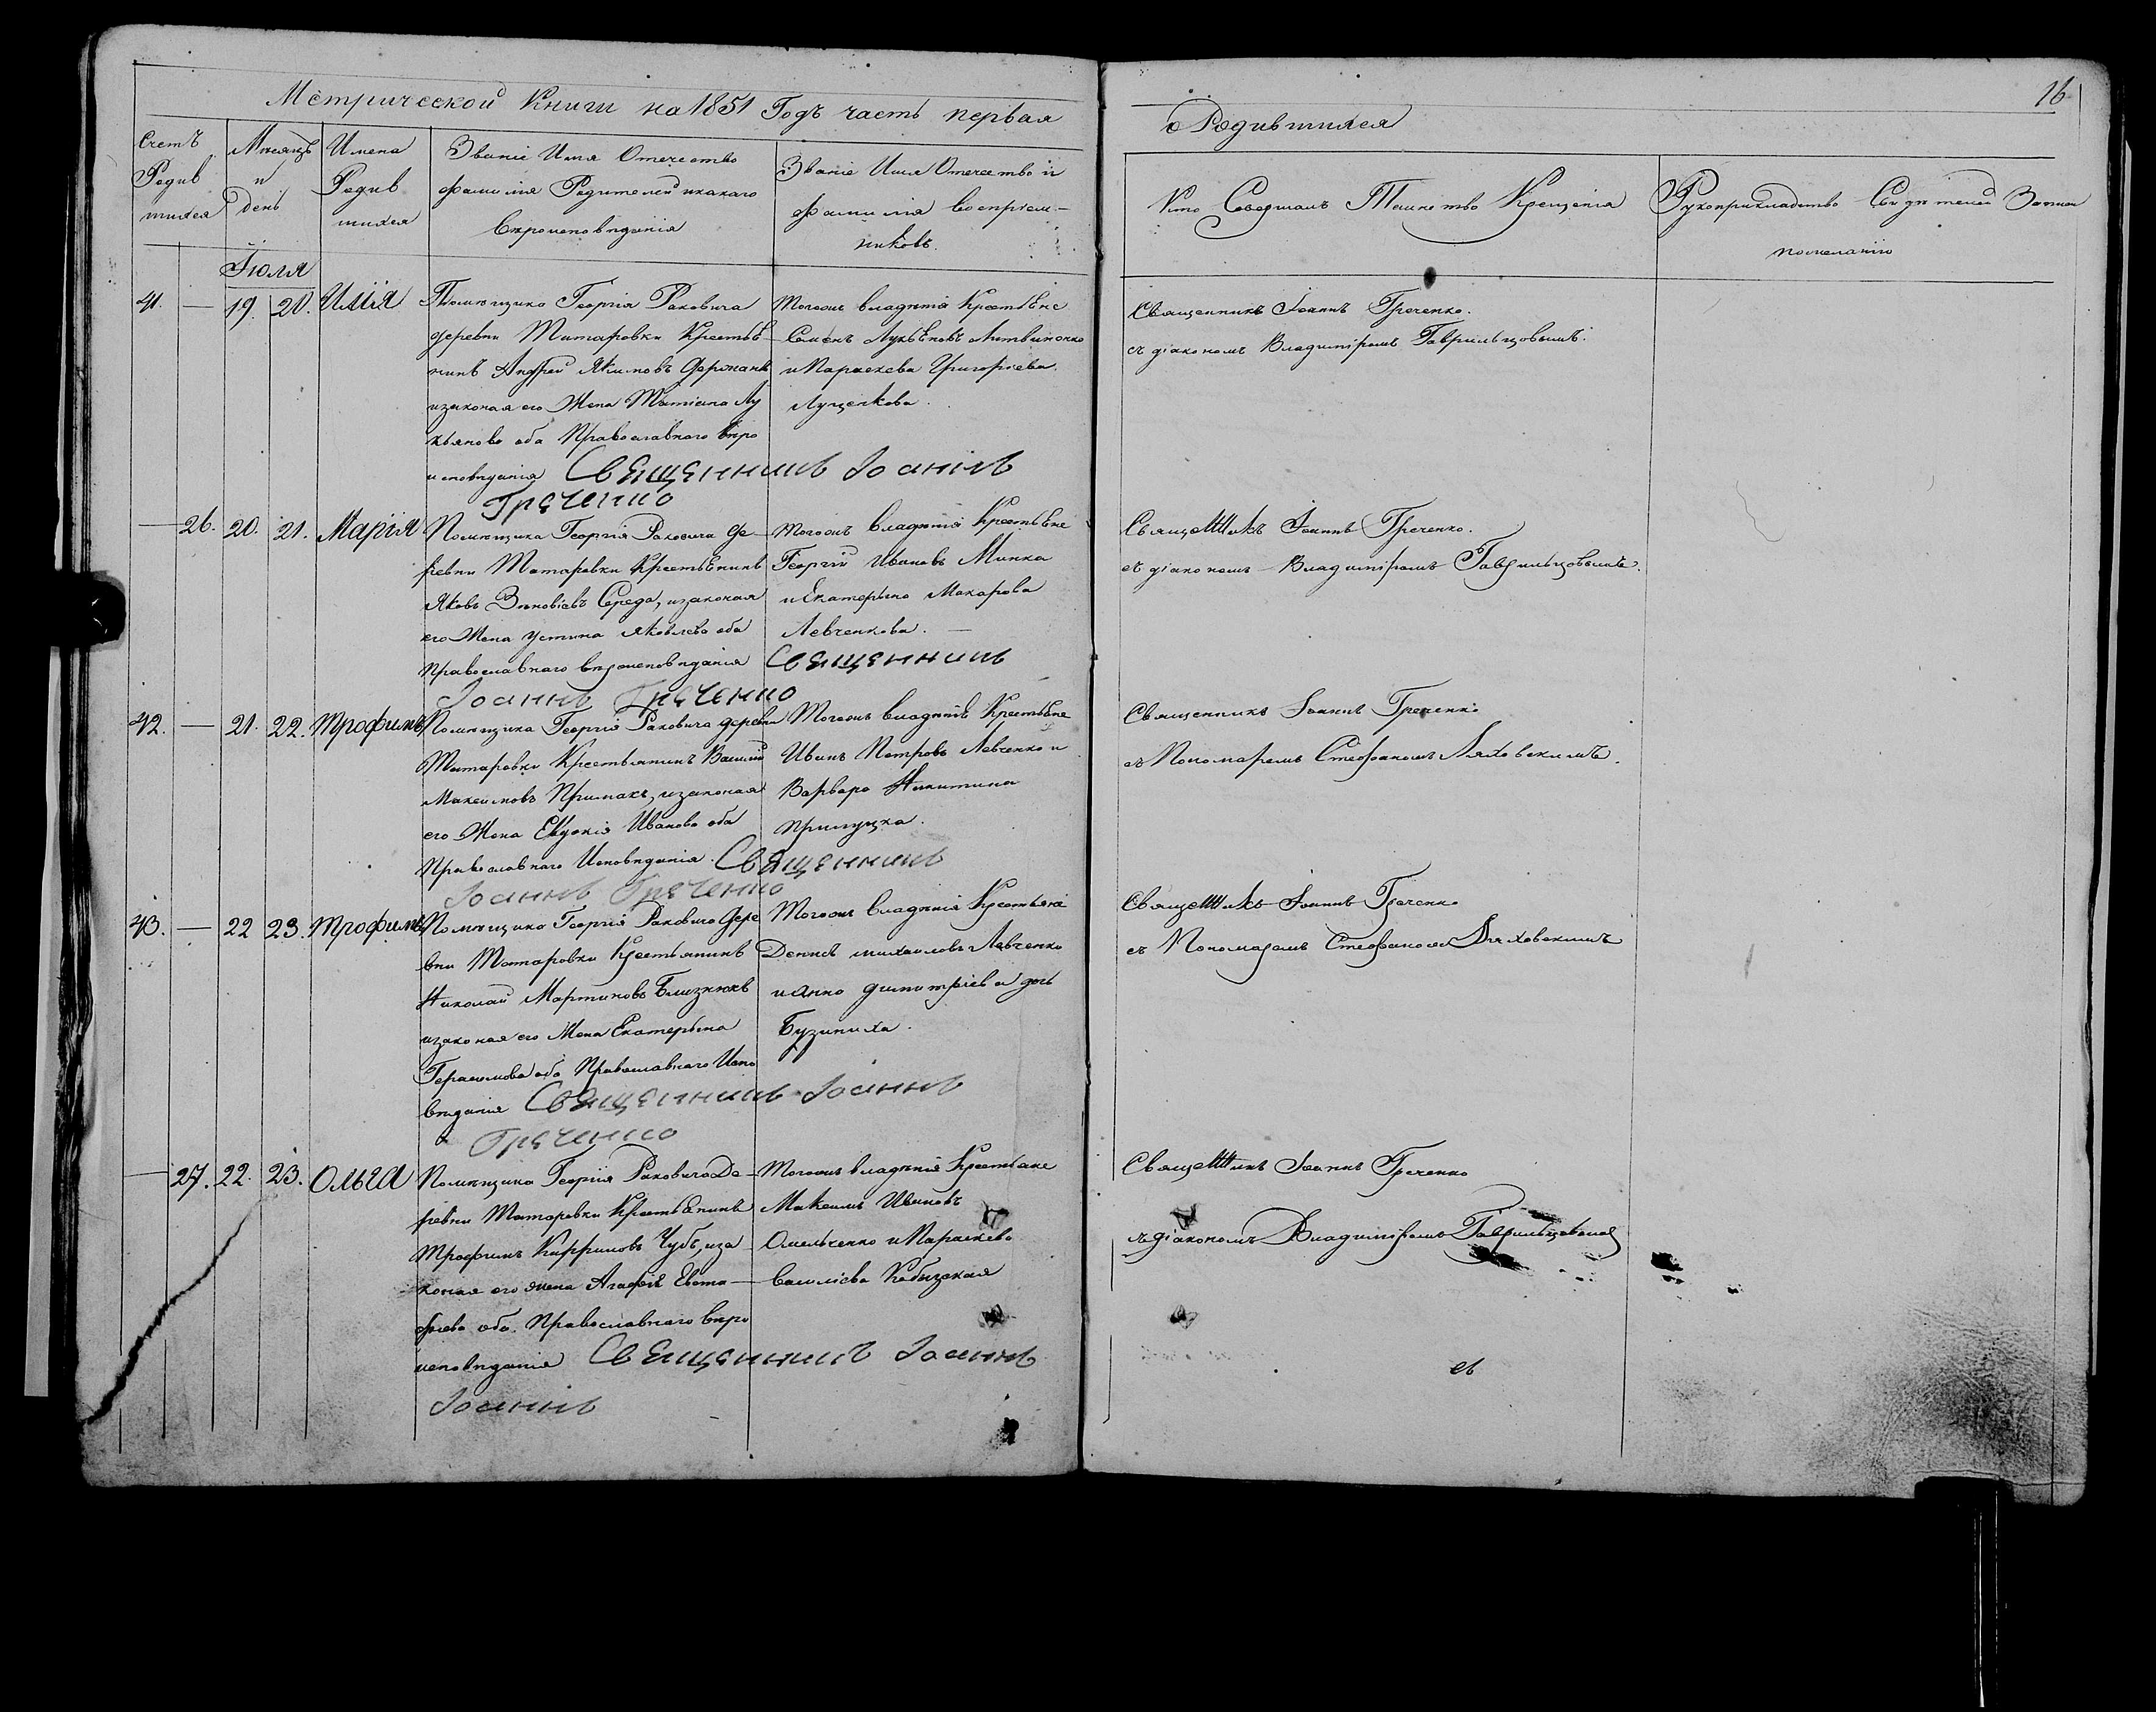 Метрической Книги на 1851 Годъ часть первая
о Родившихся
16
Счетъ Родив шихся
Месяцъ и день
Имена Родив шихся
Званіе Имя Отечество
фамилія Родителей икакаго
Вероисповеданія
Званіе Имя Отечество и
фамилія Воспріем-
никовъ
Кто Совершалъ Таинство Крещенія
Рукоприкладство Свидетелей Записи
пожеланію
Іюля
41. — 19. 20. Илія
Помещика Георгія Раковича
деревни Татаровки Крестья
нинъ Андрей Якимовъ Держанъ
изаконая его Жена Татіана Лу
кьянова оба Православнаго веро
исповеданія Священникъ Іоаннъ
Греченко
Тогоже владенія Крестьяне
Семенъ Лукьяновъ Литвиненко
и Параскева Григорьева
Лущенкова.
Священникъ Іоаннъ Греченко.
съ діакономъ Владиміромъ Гаврильцовымъ.
— 26. 20. 21. Марія
Помещика Георгія Раковича де-
ревни Татаровки Крестьянинъ
Яковъ Зиновіевъ Середа, изаконая
его Жена Устина Яковлева оба
Православнаго вероисповеданія Священникъ
Іоаннъ Греченко
Тогоже владенія Крестьяне
Георгій Ивановъ Минка
и Екатерина Макарова
Левченкова. —
Священникъ Іоаннъ Греченко.
съ діакономъ Владиміромъ Гаврильцовымъ.
42. — 21. 22. Трофимъ
Помещика Георгія Раковича деревни
Татаровки Крестьянинъ Василій
Максимовъ Примакъ, изаконая
его Жена Евдокія Иванова оба
Православнаго Исповеданія. Священникъ
Іоаннъ Греченко
Тогоже владенія Крестьяне
Иванъ Петровъ Левченко и
Варвара Никитина
Священникъ Іоаннъ Греченко
съ Пономаремъ Стефаномъ Ляховскимъ.
43. — 22 23. Трофимъ
Помещика Георгія Раковича Дере
вни Татаровки Крестьянинъ
Николай Мартиновъ Близнюкъ
изаконая его Жена Екатерина
Герасимова оба Православнаго Испо
веданія Священникъ Іоаннъ
Греченко
Тогоже владенія Крестьяне
Денисъ михаиловъ Левченко
и Анна димитріева дочь
Бузиниха.
Священникъ Іоаннъ Греченко
съ Пономаремъ Стефаномъ Ляховскимъ
— 27. 22. 23. Ольга
Помещика Георгія Раковича Де-
ревни Татаровки Крестьянинъ
Трофимъ Чубъ, иза
коная его жена Агафія Евста-
фіева оба Православнаго веро
исповеданія Священникъ Іоаннъ
Іоаннъ
Тогоже владенія Крестьяне
Максимъ Ивановъ
Омельченко и Параскева
Василіева
Священникъ Іоаннъ Греченко
съ діакономъ Владиміромъ Гаврильцовымъ
съ